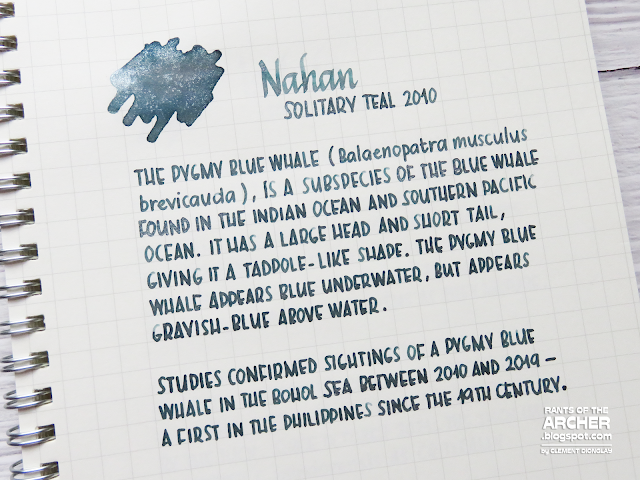 Nahan
SOLITARY TEAL 2010
THE PYGMY BLUE WHALE (Balaenopatra musculus
brevicauda), IS A SUBSPECIES OF THE BLUE WHALE
FOUND IN THE INDIAN OCEAN AND SOUTHERN PACIFIC
OCEAN. IT HAS A LARGE HEAD AND SHORT TAIL,
GIVING IT A TADPOLE-LIKE SHAPE. THE PYGMY BLUE
WHALE APPEARS BLUE UNDERWATER, BUT APPEARS
GRAYISH-BLUE ABOVE WATER.
STUDIES CONFIRMED SIGHTINGS OF A PYGMY BLUE
WHALE IN THE BOHOL SEA BETWEEN 2010 AND 2019 –
A FIRST IN THE PHILIPPINES SINCE THE 19TH CENTURY.
RANTS OF THE
ARCHER
.blogspot.com
by CLEMENT DIONGLAY